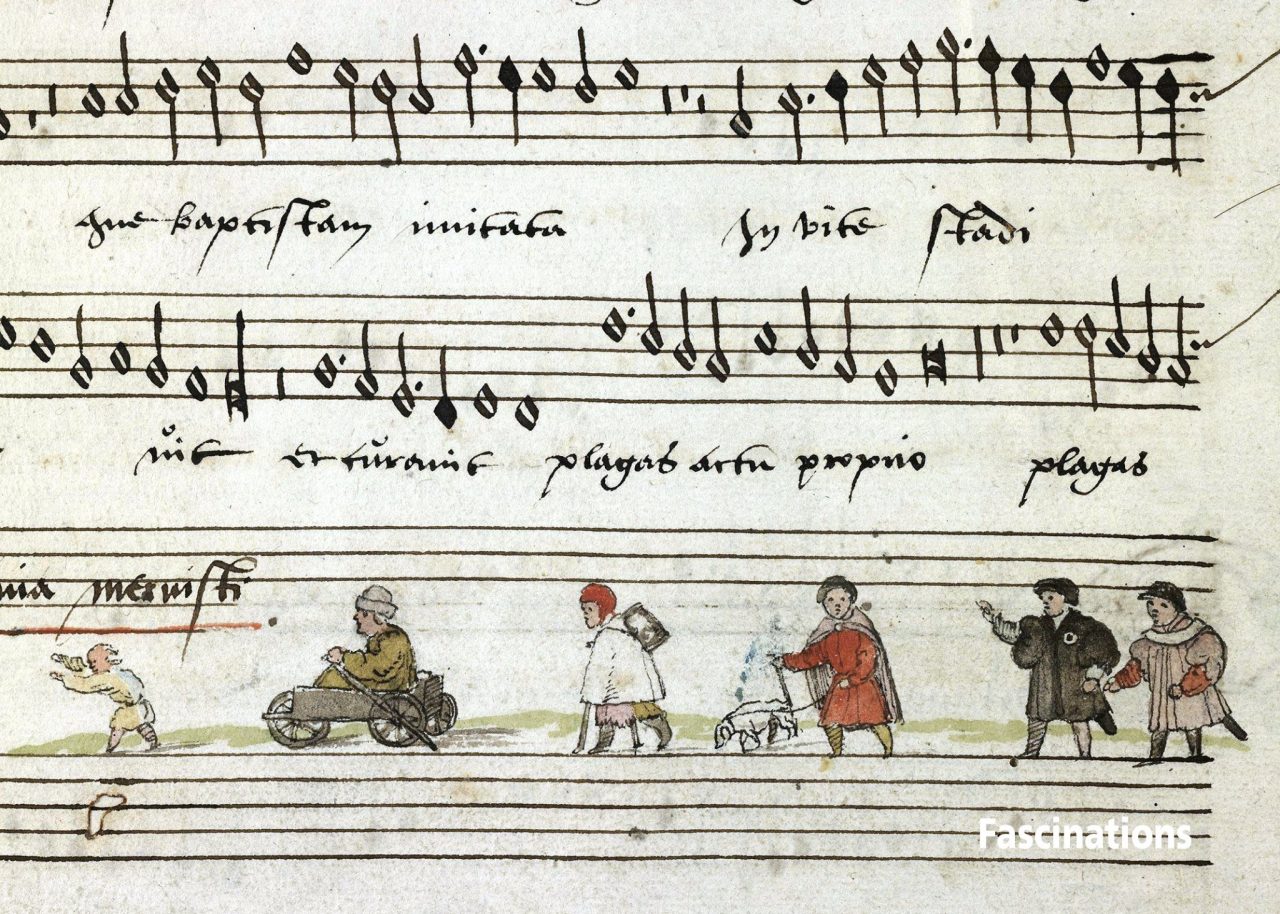 que baptistam imitata In vite stadi
vit et curavit plagas actu proprio plagas
nia meruisti
Fascinations